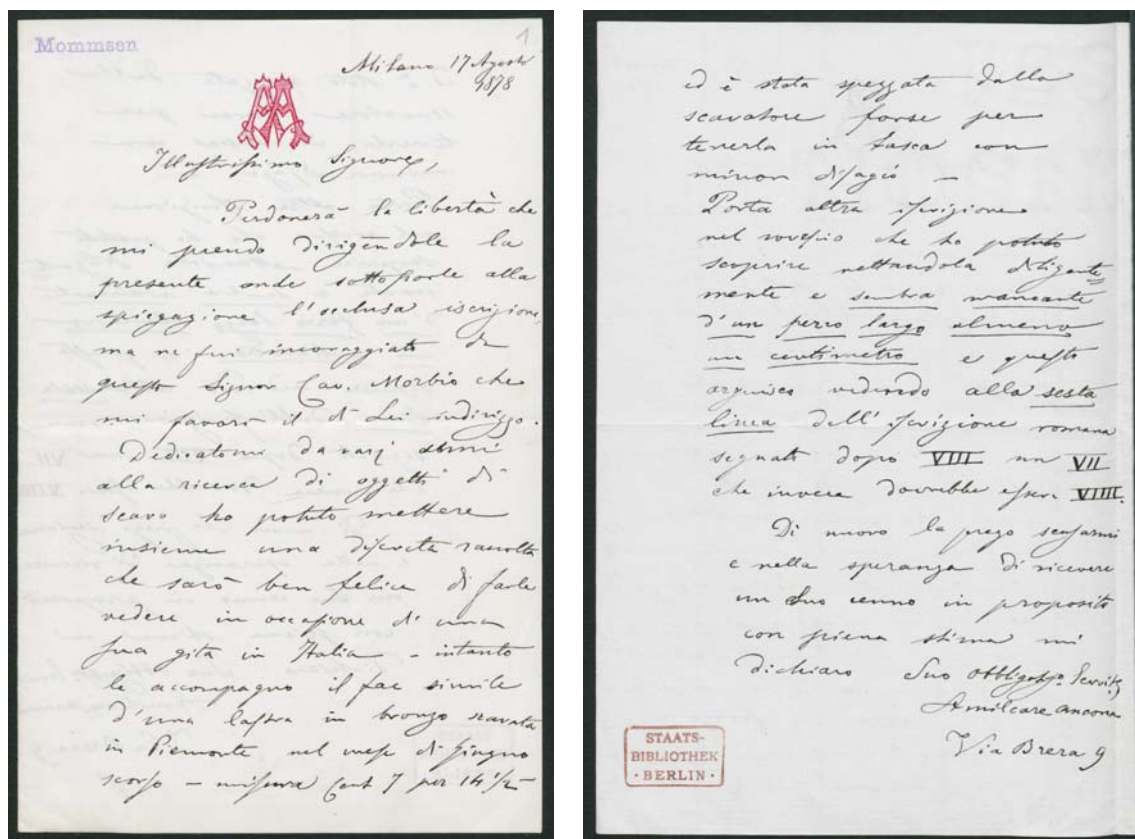 Mommsen
1
Milano 17 Agosto
1878
AA
Illustrissimo Signore,
Perdonerà la libertà che
mi prendo dirigendole la
presente onde sottoporle alla
spiegazione l'acclusa iscrizione,
ma ne fui incoraggiato da
questo Signor Cav. Morbio che
mi favorì il di Lei indirizzo.
Dedicatomi da varj anni
alla ricerca di oggetti di
scavo ho potuto mettere
insieme una discreta raccolta
che sarò ben felice di farle
vedere in occasione di una
sua gita in Italia - intanto
le accompagno il fac simile
d'una lastra in bronzo scavata
in Piemonte nel mese di giugno
scorso - misura Cent 7 per 14 1/2 -
ed è stata spezzata dallo
scavatore forse per
tenerla in tasca con
minor disagio -
Porta altra iscrizione
nel rovescio che ho potuto
scoprire nettandola diligente=
mente e sembra mancante
d'un pezzo largo almeno
un centimetro e questo
arguisco vedendo alla sesta
linea dell'iscrizione romana
segnato dopo VIII un VII
che invece dovrebbe essere VIIII.
Di nuovo la prego scusarmi
e nella speranza di ricevere
un Suo cenno in proposito
con piena stima mi
dichiaro Suo
Amilcare Ancona
Via Brera 9
STAATS-
BIBLIOTHEK
· BERLIN ·